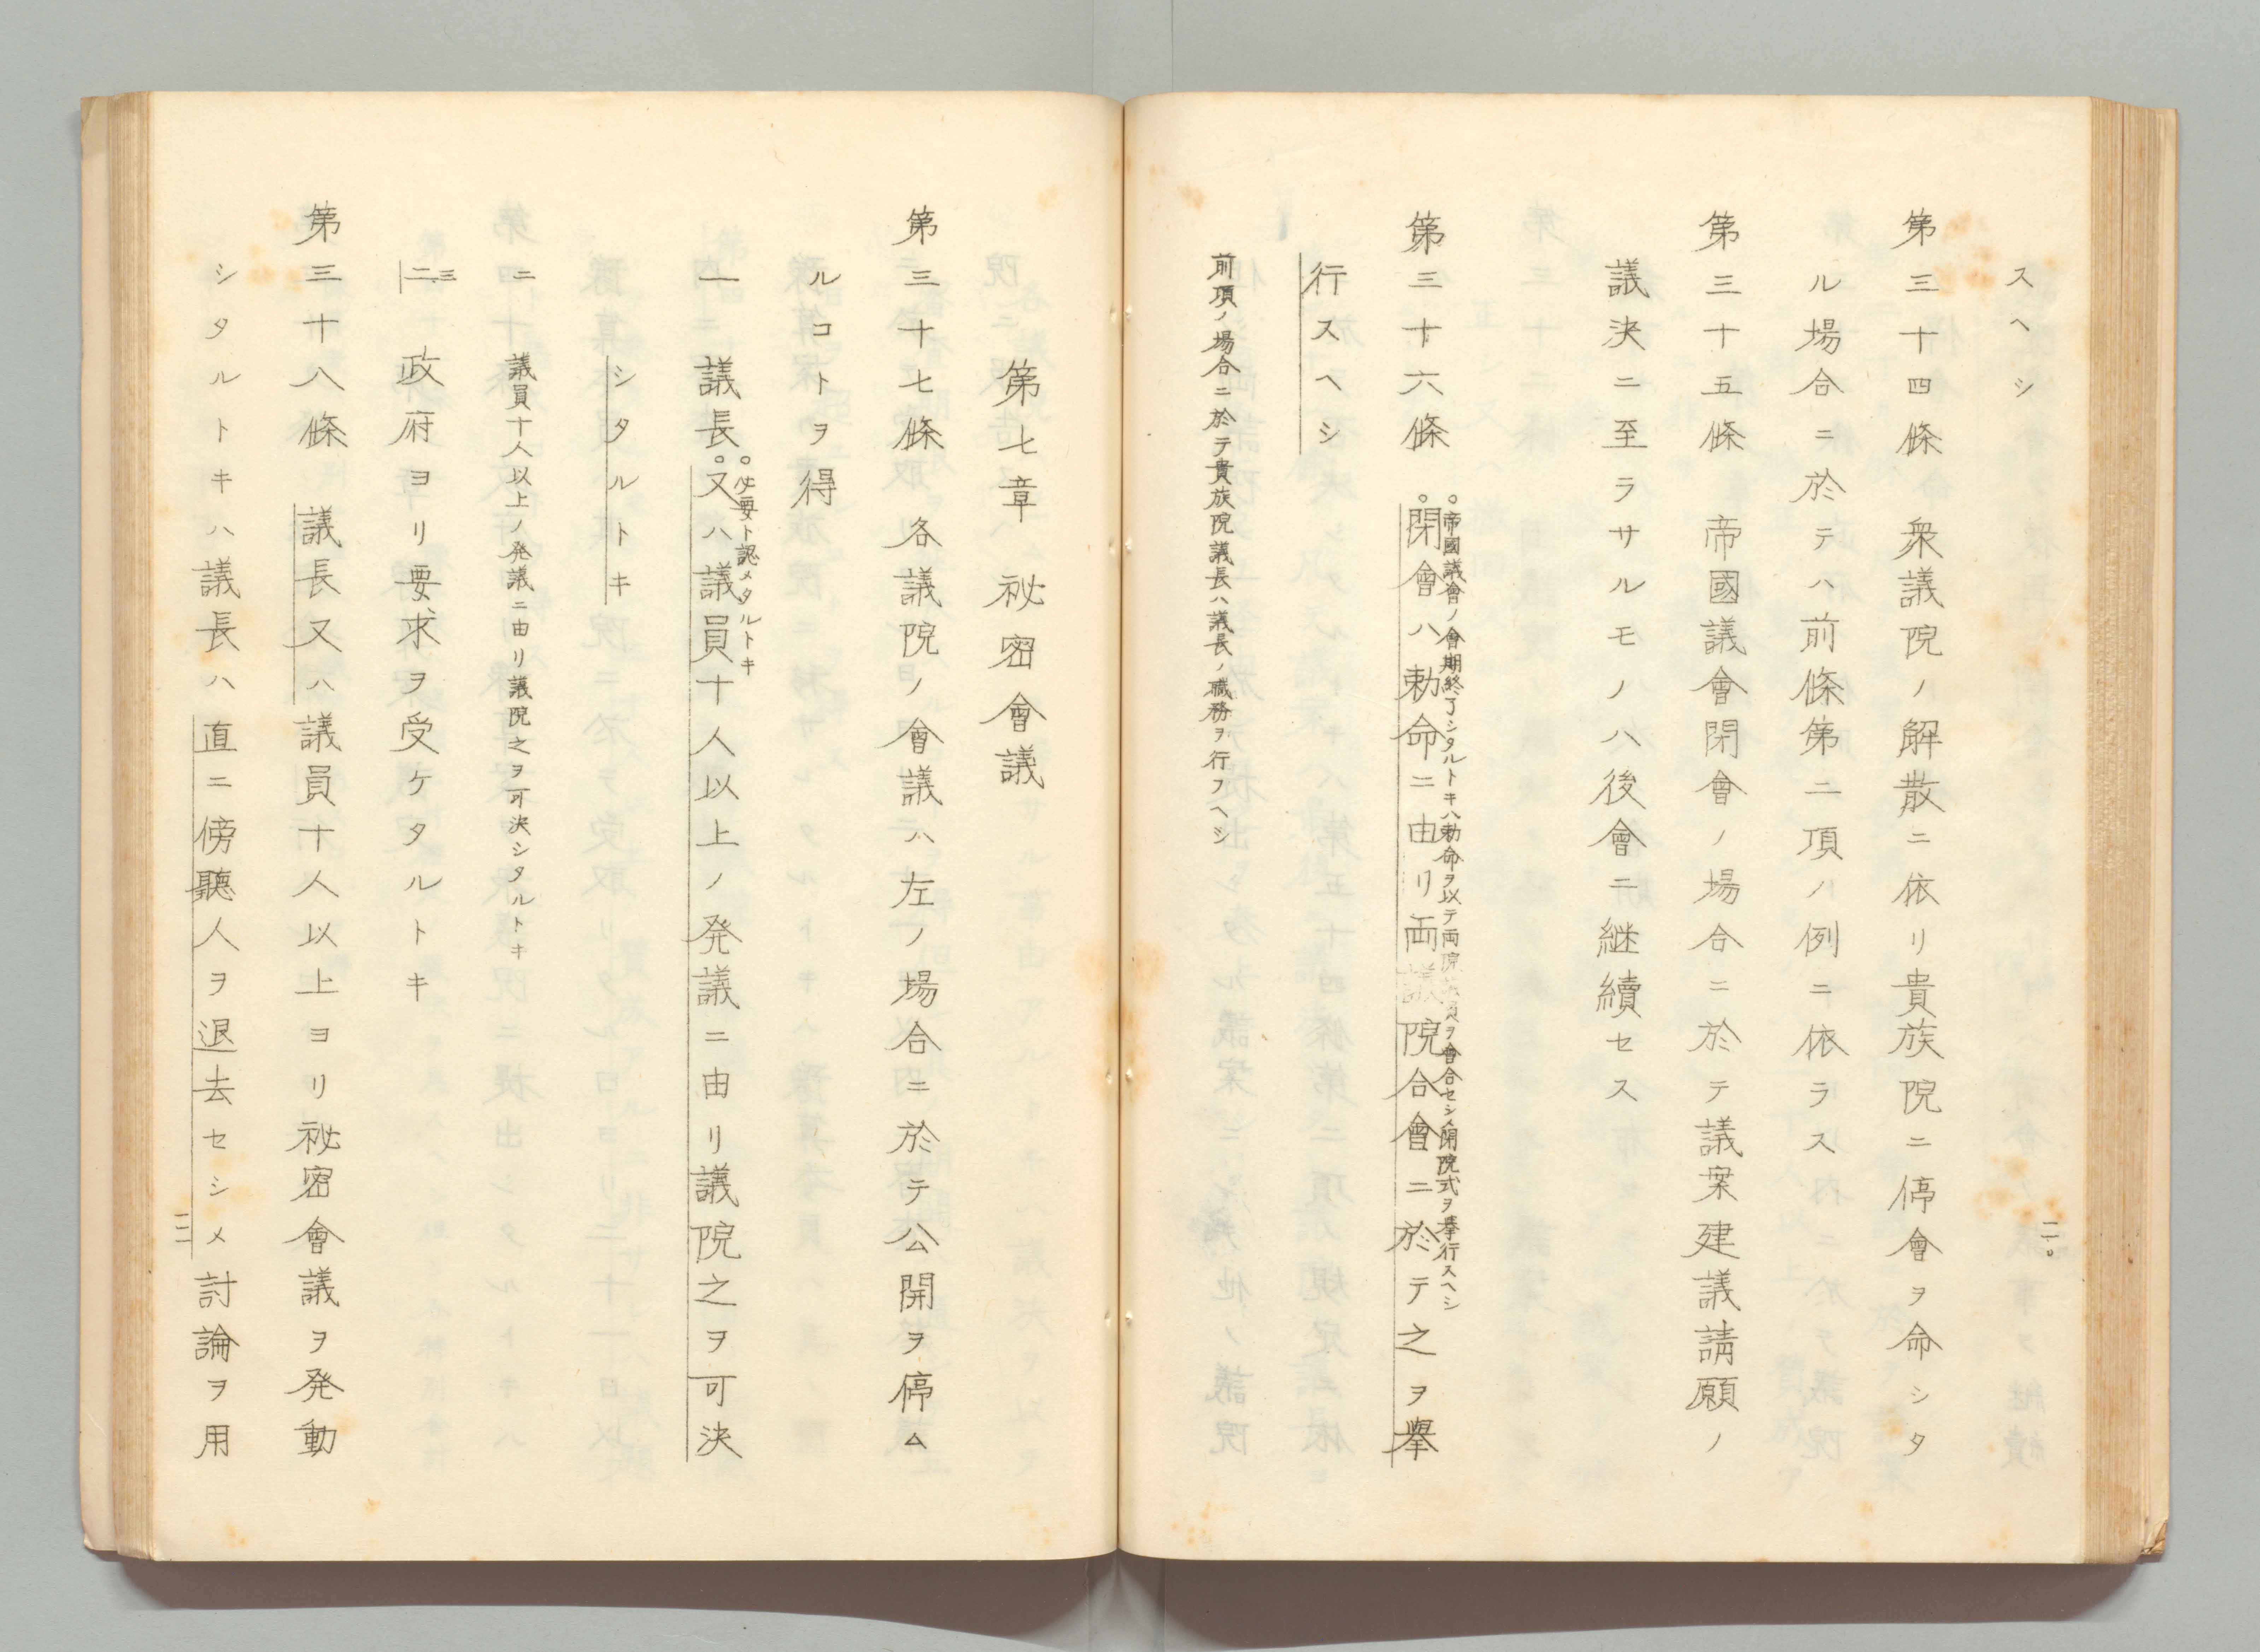 スヘシ
第三十四條　衆議院ノ解散ニ依リ貴族院ニ停會ヲ命シタ
ル場合ニ於テハ前條第二項ノ例ニ依ラス
第三十五條　帝國議會閉會ノ場合ニ於テ議案建議請願ノ
議決ニ至ラサルモノハ後會ニ継續セス
。帝國議會ノ會期終了シタルトキハ勅命ヲ以テ両院議員ヲ會合セシメ閉院式ヲ擧行スヘシ
第三十六條　。閉會ハ勅命ニ由リ両議院合會ニ於テ之ヲ擧
行スヘシ
前項ノ場合ニ於テ貴族院議長ハ議長ノ職務ヲ行フヘシ
二〇
第七章　祕密會議
第三十七條　各議院ノ會議ハ左ノ場合ニ於テ公開ヲ停ム
ルコトヲ得
。必要ト認メタルトキ
一　議長。又ハ議員十人以上ノ発議ニ由リ議院之ヲ可決
シタルトキ
二　議員十人以上ノ発議ニ由リ議院之ヲ可決シタルトキ
三
二　政府ヨリ要求ヲ受ケタルトキ
第三十八條　議長又ハ議員十人以上ヨリ祕密會議ヲ発動
シタルトキハ議長ハ直ニ傍聽人ヲ退去セシメ討論ヲ用
二一